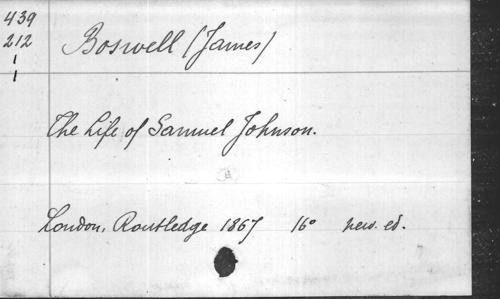 439
212
1
1
Boswell (James)
The Life of Samuel Johnson.
London, Routledge 1867 16° new. ed.